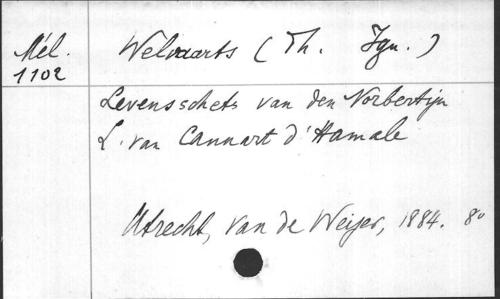 Mél. Welvaarts (Th. Ign.)
1102
Levensschets van den Norbertijn
L. van Cannart d'Hamale
Utrecht, van de Weijer, 1884. 8º